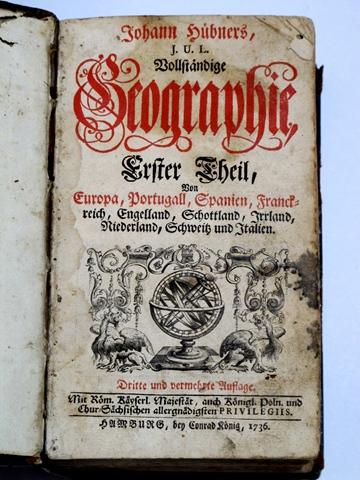 Johann Hübners,
J. U. L.
Vollständige
Geographie,
Erster Theil,
Von
Europa, Portugall, Spanien, Franck-
reich, Engelland, Schottland, Irrland,
Niederland, Schweitz und Italien.
Dritte und vermehrte Auflage.
Mit Röm. Käyserl. Majestät, auch Königl. Poln. und
Chur-Sächsischen allergnädigsten PRIVILEGIIS.
HAMBURG, bey Conrad König, 1736.